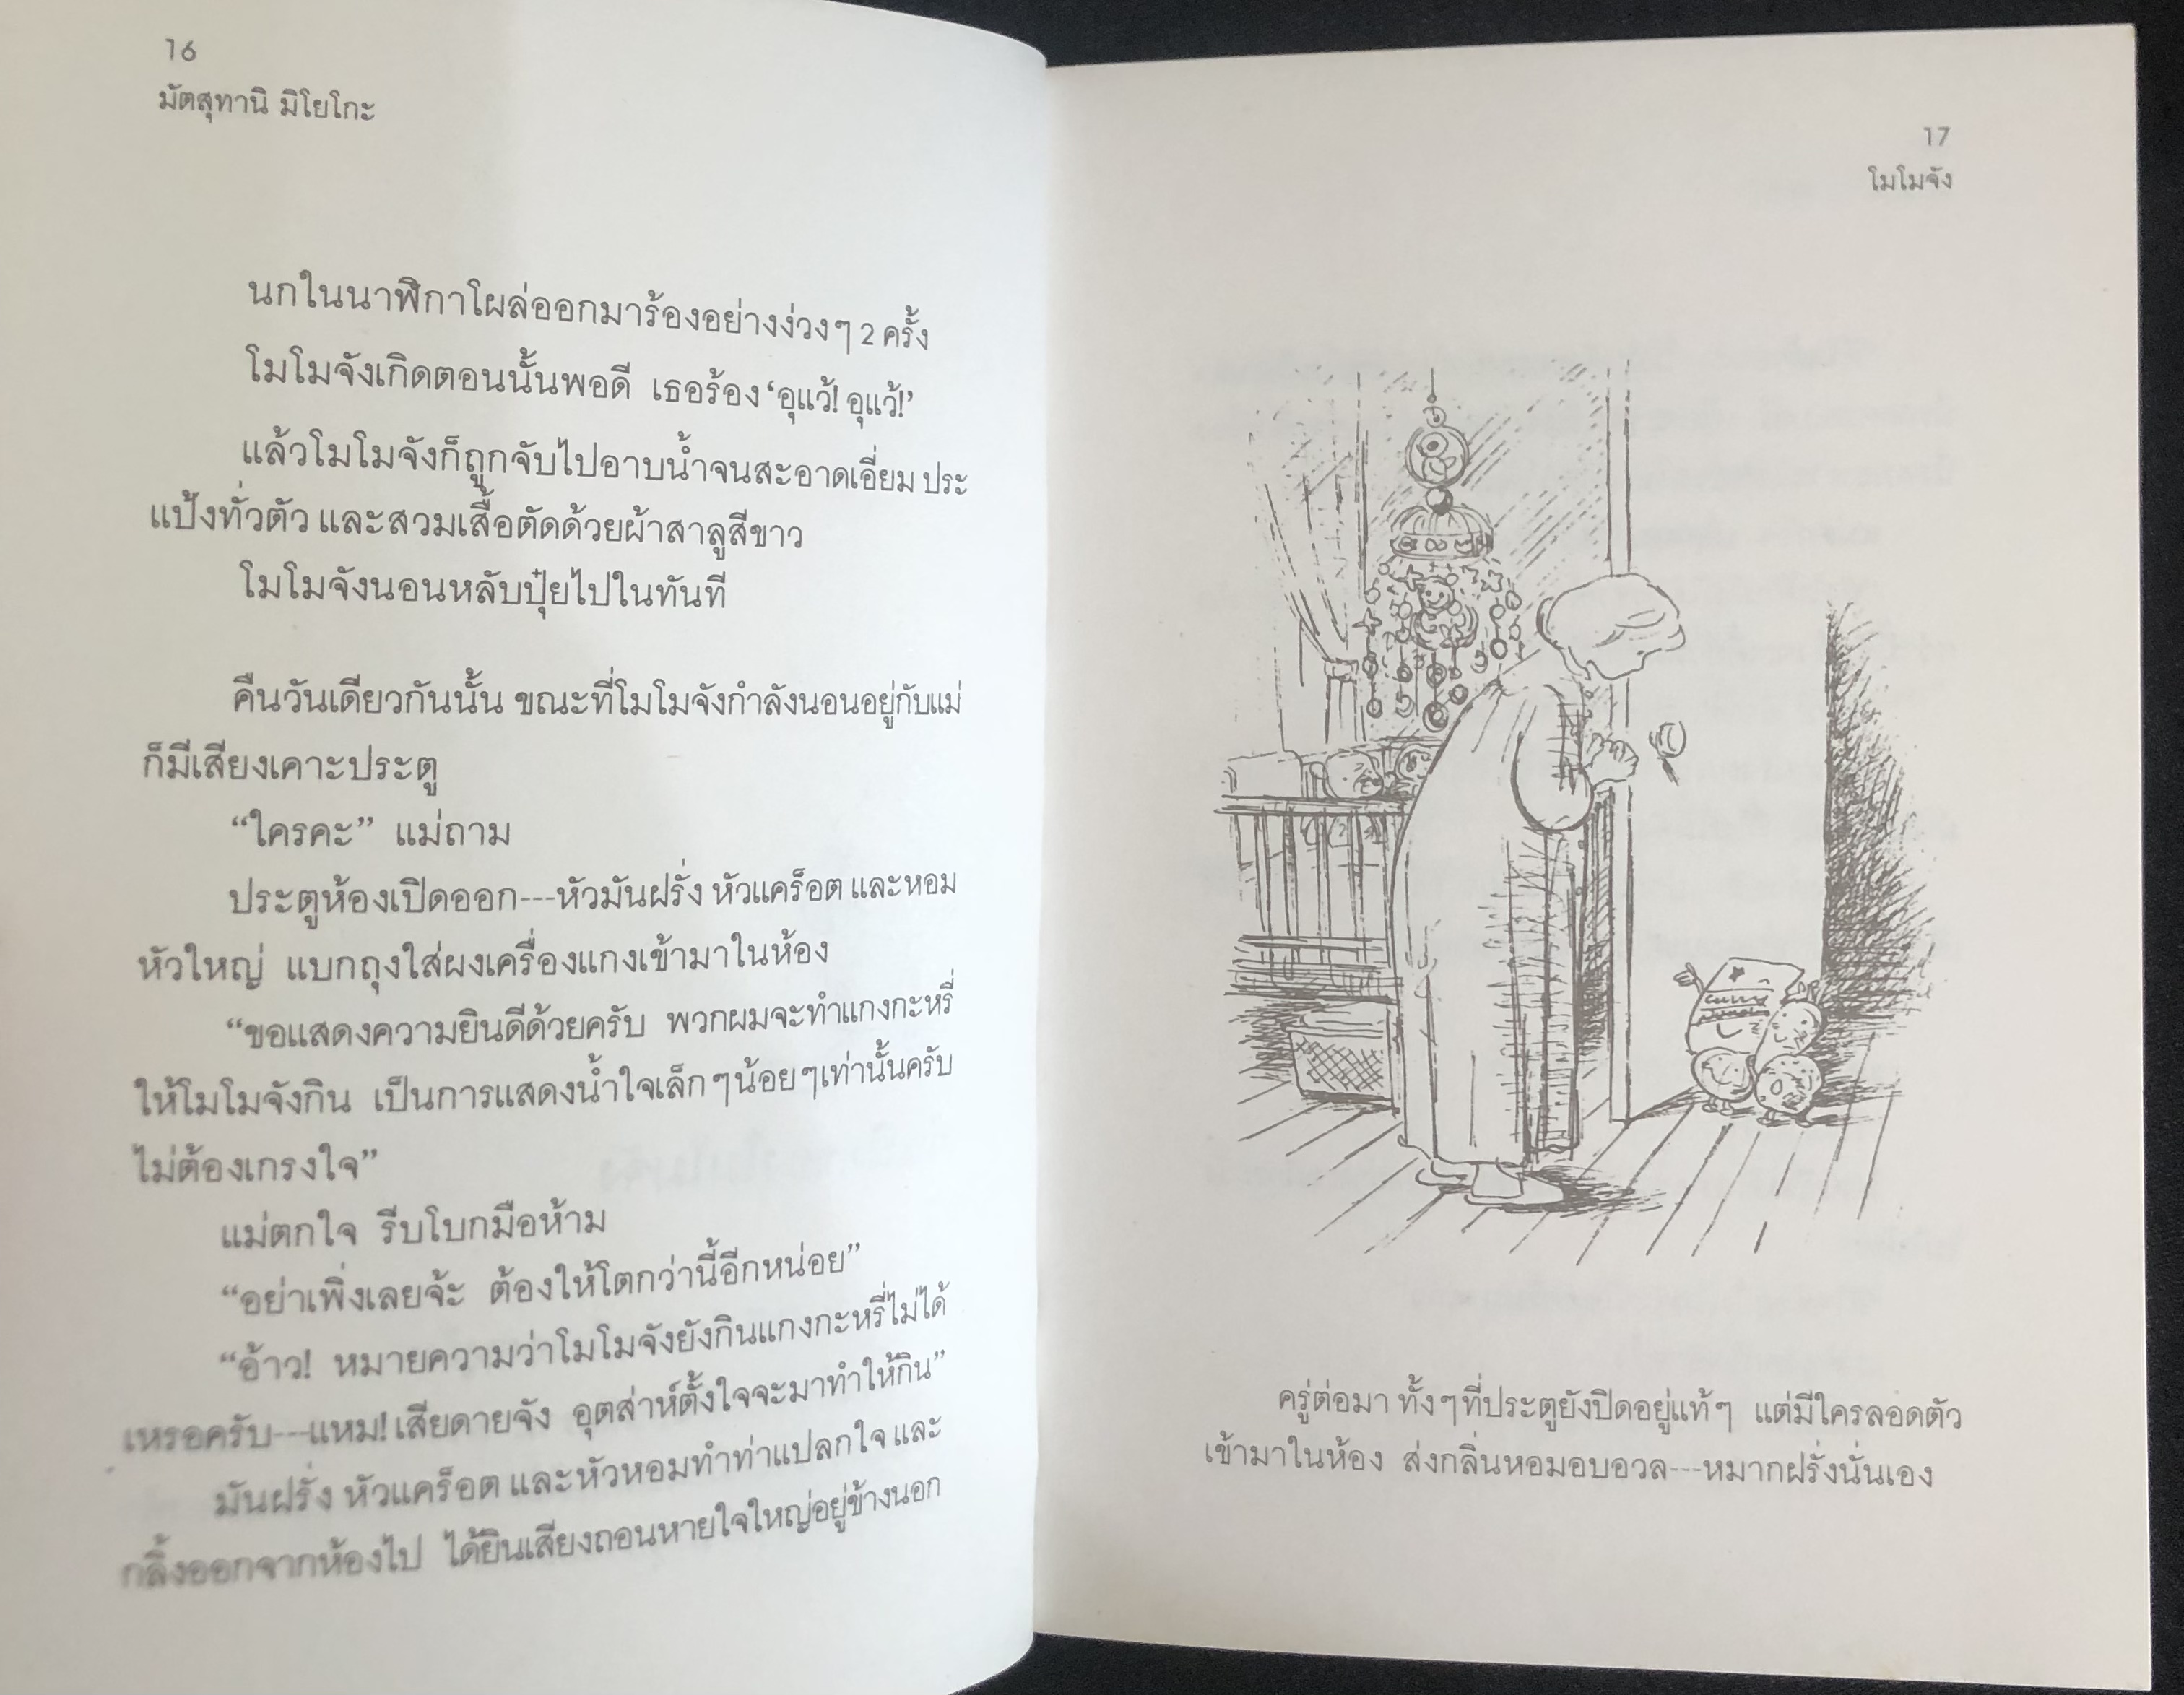 16
มัตสุทานิ มิโยโกะ
นกในนาฬิกาโผล่ออกมาร้องอย่างง่วงๆ 2 ครั้ง
โมโมจังเกิดตอนนั้นพอดี เธอร้อง ‘อุแว้! อุแว้!’
แล้วโมโมจังก็ถูกจับไปอาบน้ำจนสะอาดเอี่ยม ประ
แป้งทั่วตัว และสวมเสื้อตัดด้วยผ้าสาลูสีขาว
โมโมจังนอนหลับปุ๋ยไปในทันที
คืนวันเดียวกันนั้น ขณะที่โมโมจังกำลังนอนอยู่กับแม่
ก็มีเสียงเคาะประตู
“ใครคะ” แม่ถาม
ประตูห้องเปิดออก---หัวมันฝรั่ง หัวแคร็อต และหอม
หัวใหญ่ แบกถุงใส่ผงเครื่องแกงเข้ามาในห้อง
“ขอแสดงความยินดีด้วยครับ พวกผมจะทำแกงกะหรี่
ให้โมโมจังกิน เป็นการแสดงน้ำใจเล็กๆน้อยๆเท่านั้นครับ
ไม่ต้องเกรงใจ”
แม่ตกใจ รีบโบกมือห้าม
“อย่าเพิ่งเลยจ้ะ ต้องให้โตกว่านี้อีกหน่อย”
“อ้าว! หมายความว่าโมโมจังยังกินแกงกะหรี่ไม่ได้
เหรอครับ---แหม! เสียดายจัง อุตส่าห์ตั้งใจจะมาทำให้กิน”
มันฝรั่ง หัวแคร็อต และหัวหอมทำท่าแปลกใจ และ
กลิ้งออกจากห้องไป ได้ยินเสียงถอนหายใจใหญ่อยู่ข้างนอก
17
โมโมจัง
ครู่ต่อมา ทั้งๆที่ประตูยังปิดอยู่แท้ๆ แต่มีใครลอดตัว
เข้ามาในห้อง ส่งกลิ่นหอมอบอวล---หมากฝรั่งนั่นเอง